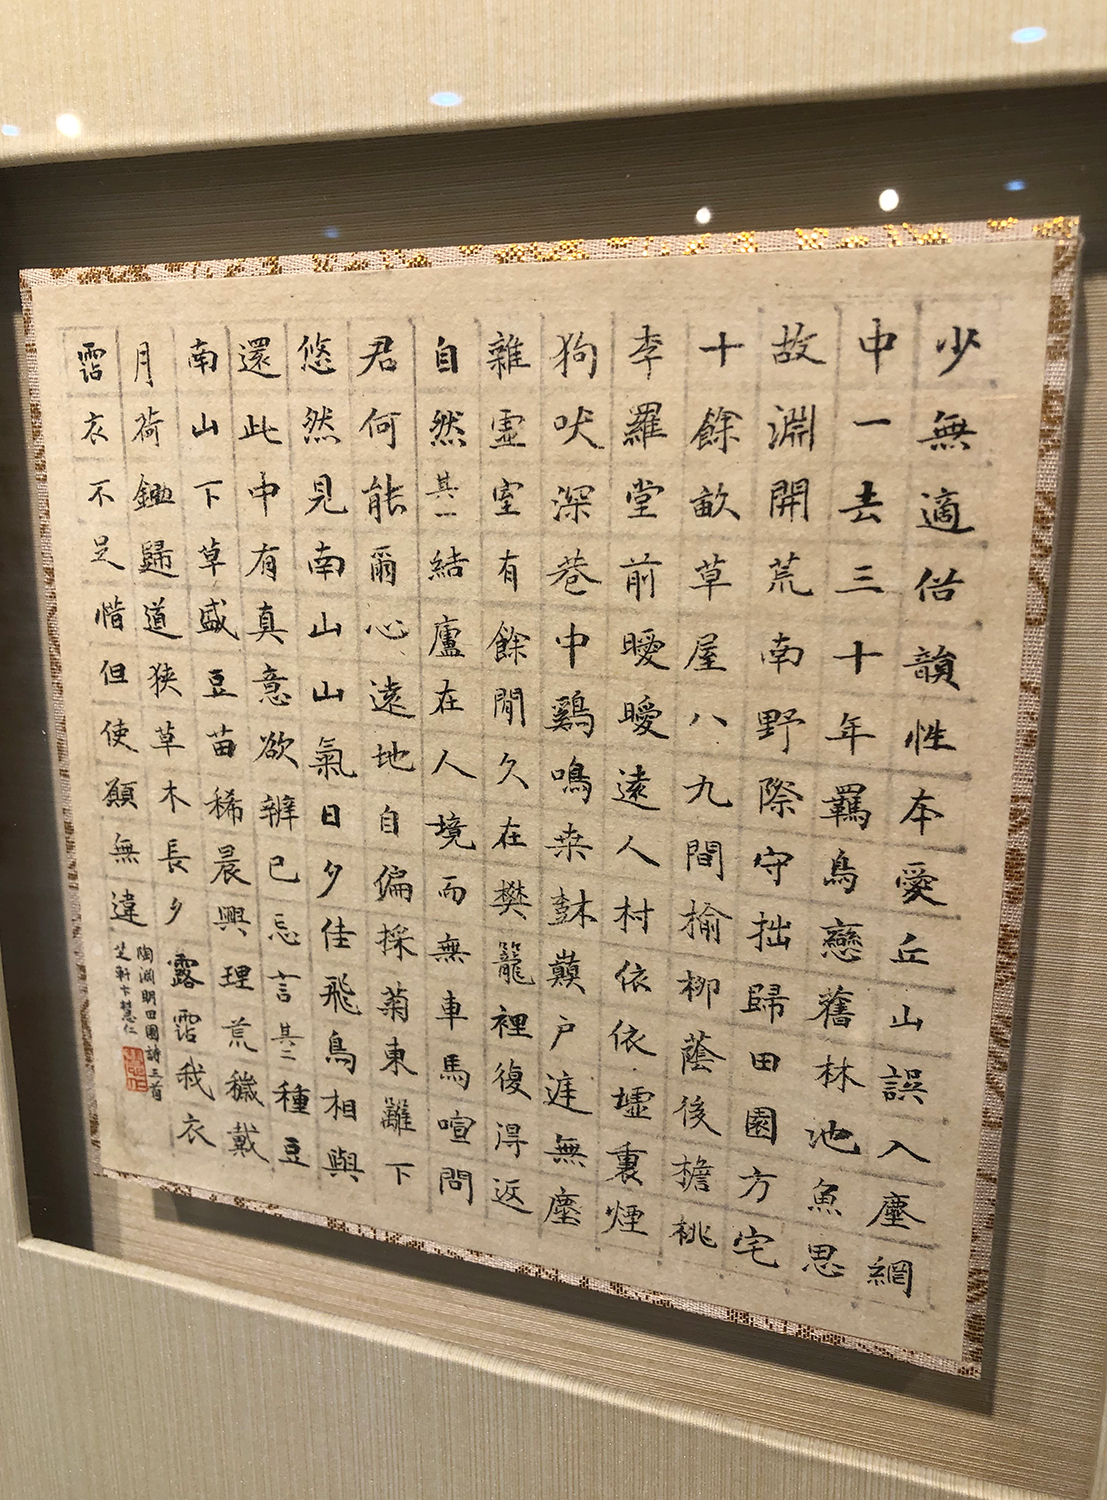 少無適俗韻性本愛丘山誤入塵網
中一去三十年羈鳥戀舊林池魚思
故淵開荒南野際守拙歸田園方宅
十餘畝草屋八九間榆柳蔭後檐桃
李羅堂前曖曖遠人村依依墟裏煙
狗吠深巷中鷄鳴桒樹巔戶庭無塵
雜虛室有餘閒久在樊籠裡復得返
自然其一結廬在人境而無車馬喧問
君何能爾心遠地自偏採菊東籬下
悠然見南山山氣日夕佳飛鳥相與
還此中有真意欲辨已忘言其二種豆
南山下草盛豆苗稀晨興理荒穢戴
月荷鋤歸道狹草木長夕露霑我衣
霑衣不足惜但使願無違
陶淵明田園詩三首
芝軒卞慧仁